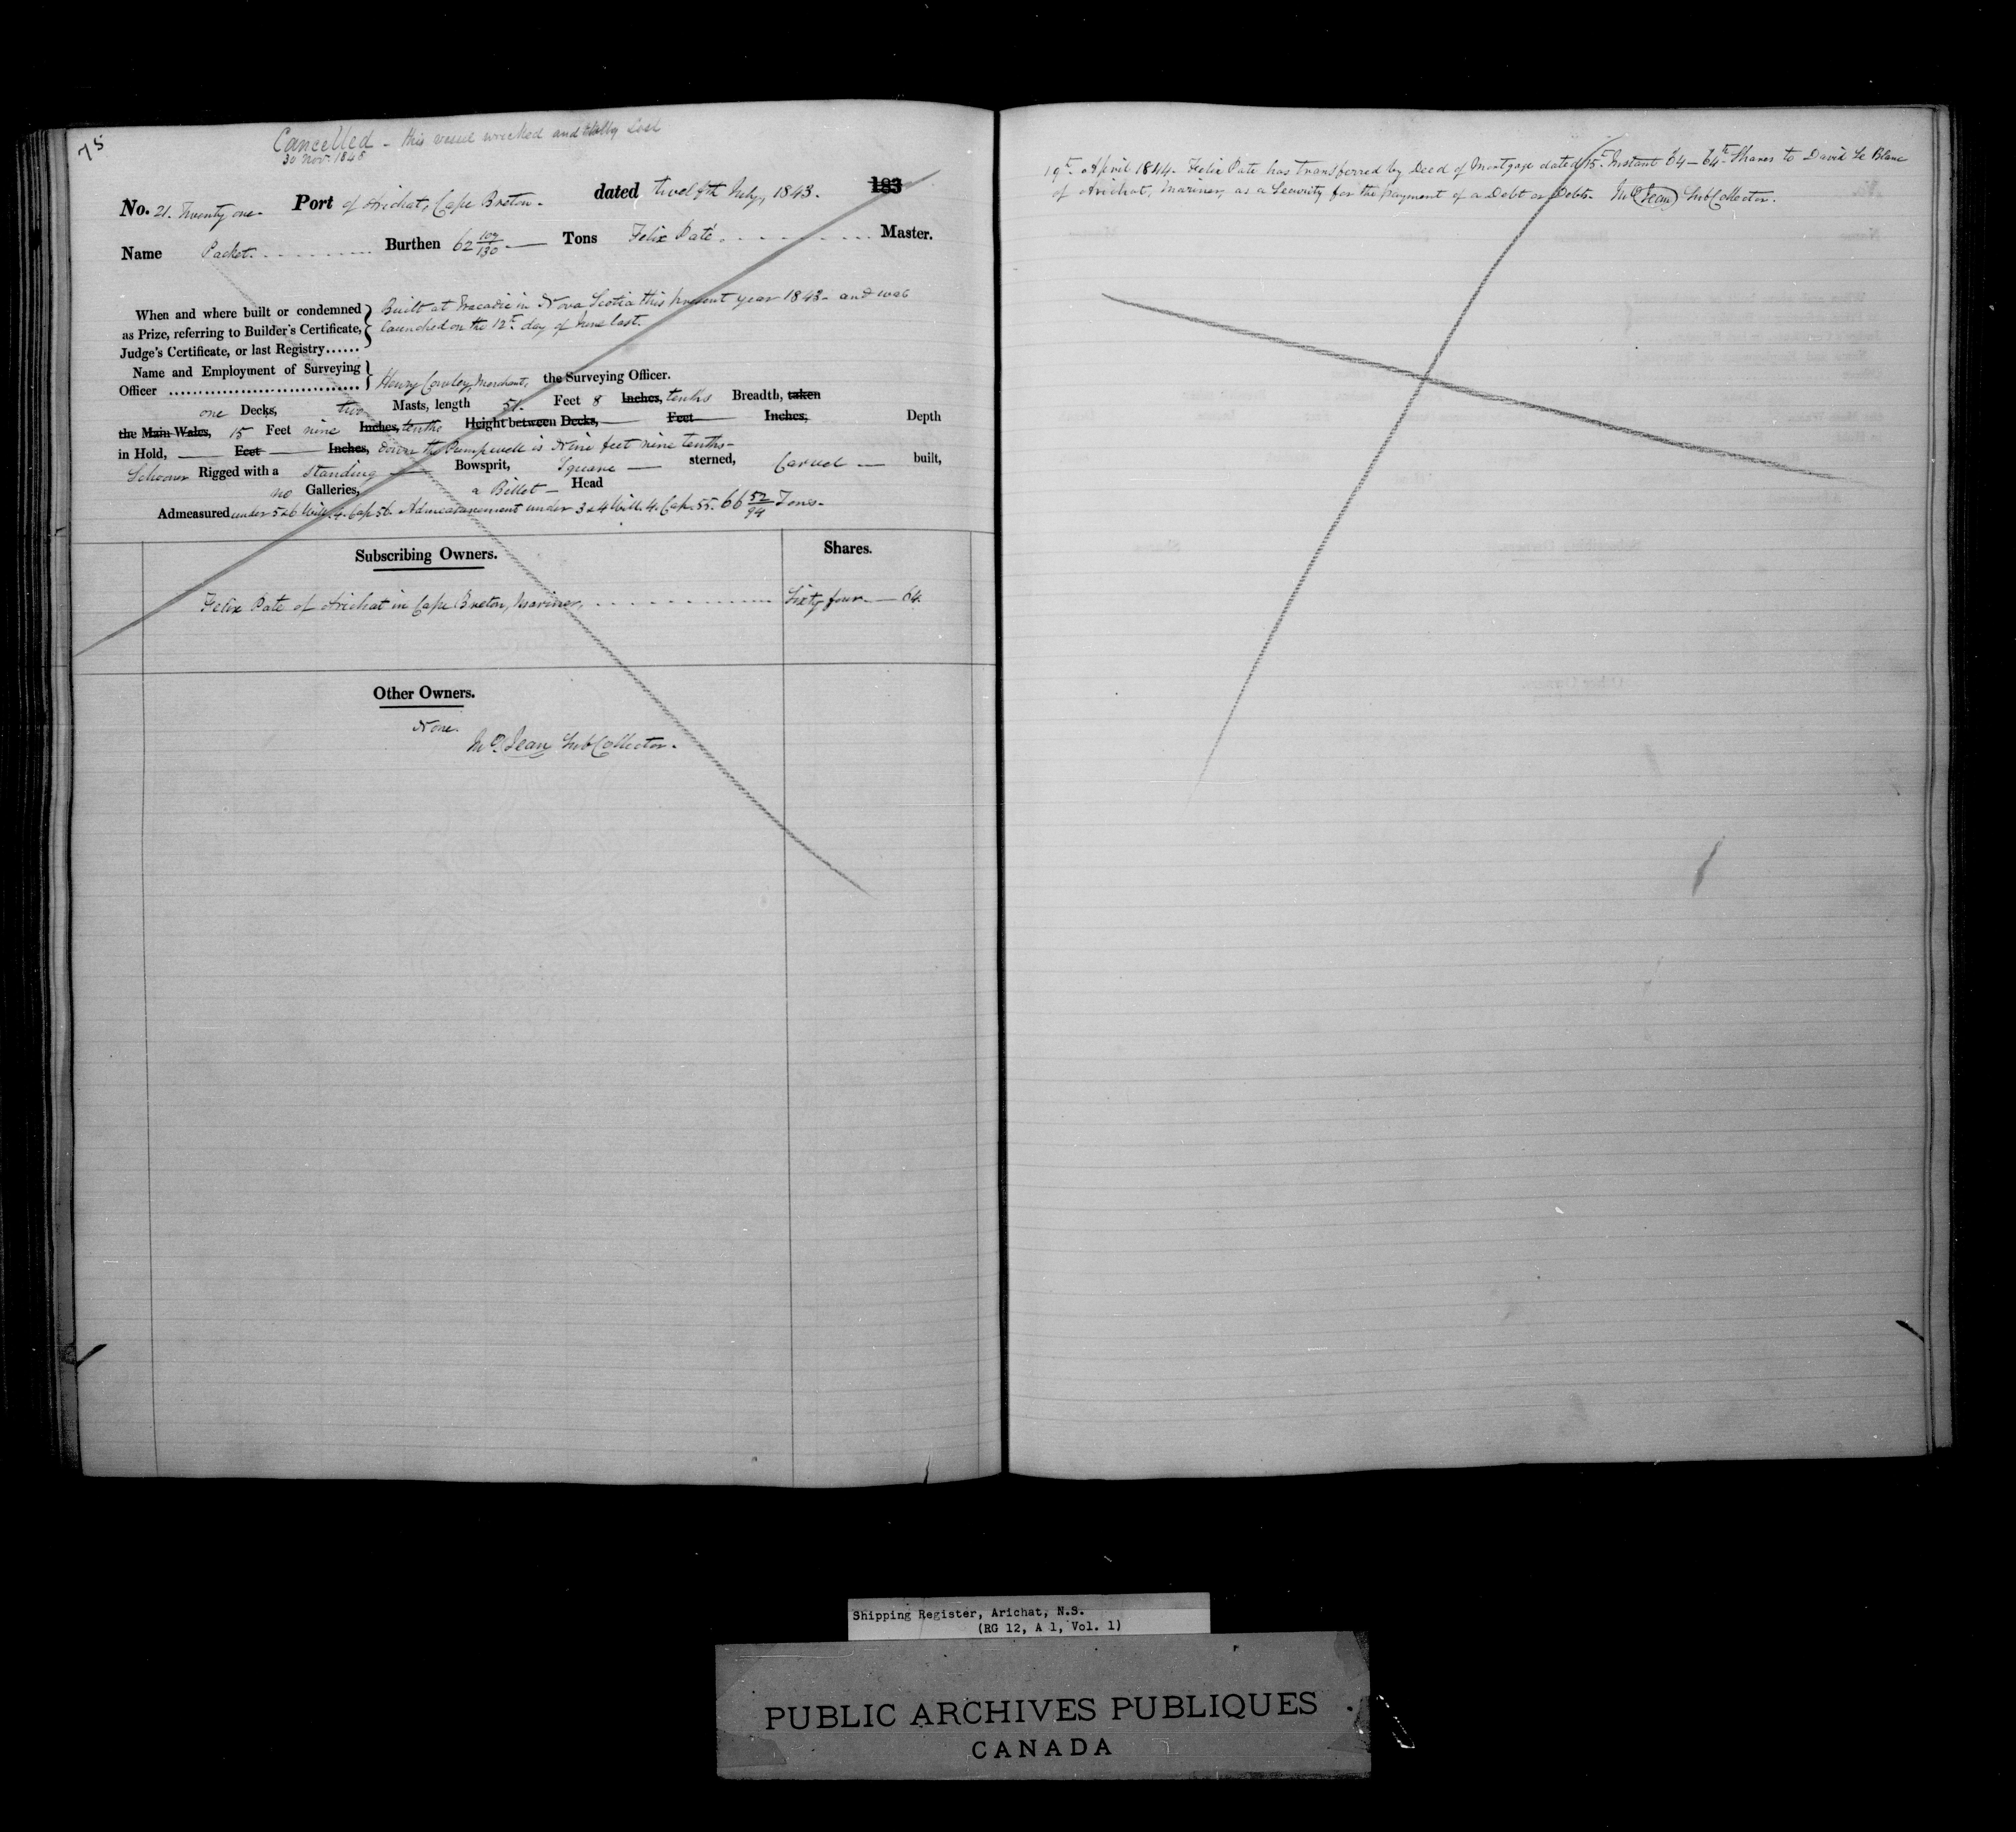 75
Cancelled - this vessel wrecked and totally lost
30 Nov. 1848
No. 21. Twenty one. Port of Arichat, Cape Breton. dated twelfth July, 1843. 183
Name Packet. Burthen 62 109/130 Tons Felix Paté. Master.
When and where built or condemned as Prize, referring to Builder's Certificate, Judge's Certificate, or last Registry......
Built at Tracadie in Nova Scotia this present year 1843 - and was
launched on the 12th day of June last.
Name and Employment of Surveying
Officer ................................ Henry Cowley, Merchant, the Surveying Officer.
one Decks, two Masts, length 51. Feet 8 Inches, tenths Breadth, taken
the Main Wales, 15 Feet nine Inches, tenths Height between Decks, Feet Inches, Depth
in Hold, Feet Inches, down the Pumpwell is Nine feet nine tenths-
Schooner Rigged with a standing Bowsprit, Square sterned, Carvel built,
no Galleries, a Billet Head
Admeasured under 5 & 6 Will. 4. Cap 56. Admeasurement under 3 & 4 Will. 4. Cap. 55. 66 52/94 Tons.
Subscribing Owners. Shares.
Felix Pate of Arichat in Cape Breton, Mariner, Sixty four 64.
Other Owners.
None.
Jean SubCollector.
19th April 1844. Felix Pate has transferred by Deed of Mortgage dated 15th Instant 64-64th Shares to David Le Blanc
of Arichat, Mariner, as a Security for the payment of a Debt or Debts. Jean SubCollector.
Shipping Register, Arichat, N.S.
(RG 12, A 1, Vol. 1)
PUBLIC ARCHIVES PUBLIQUES
CANADA